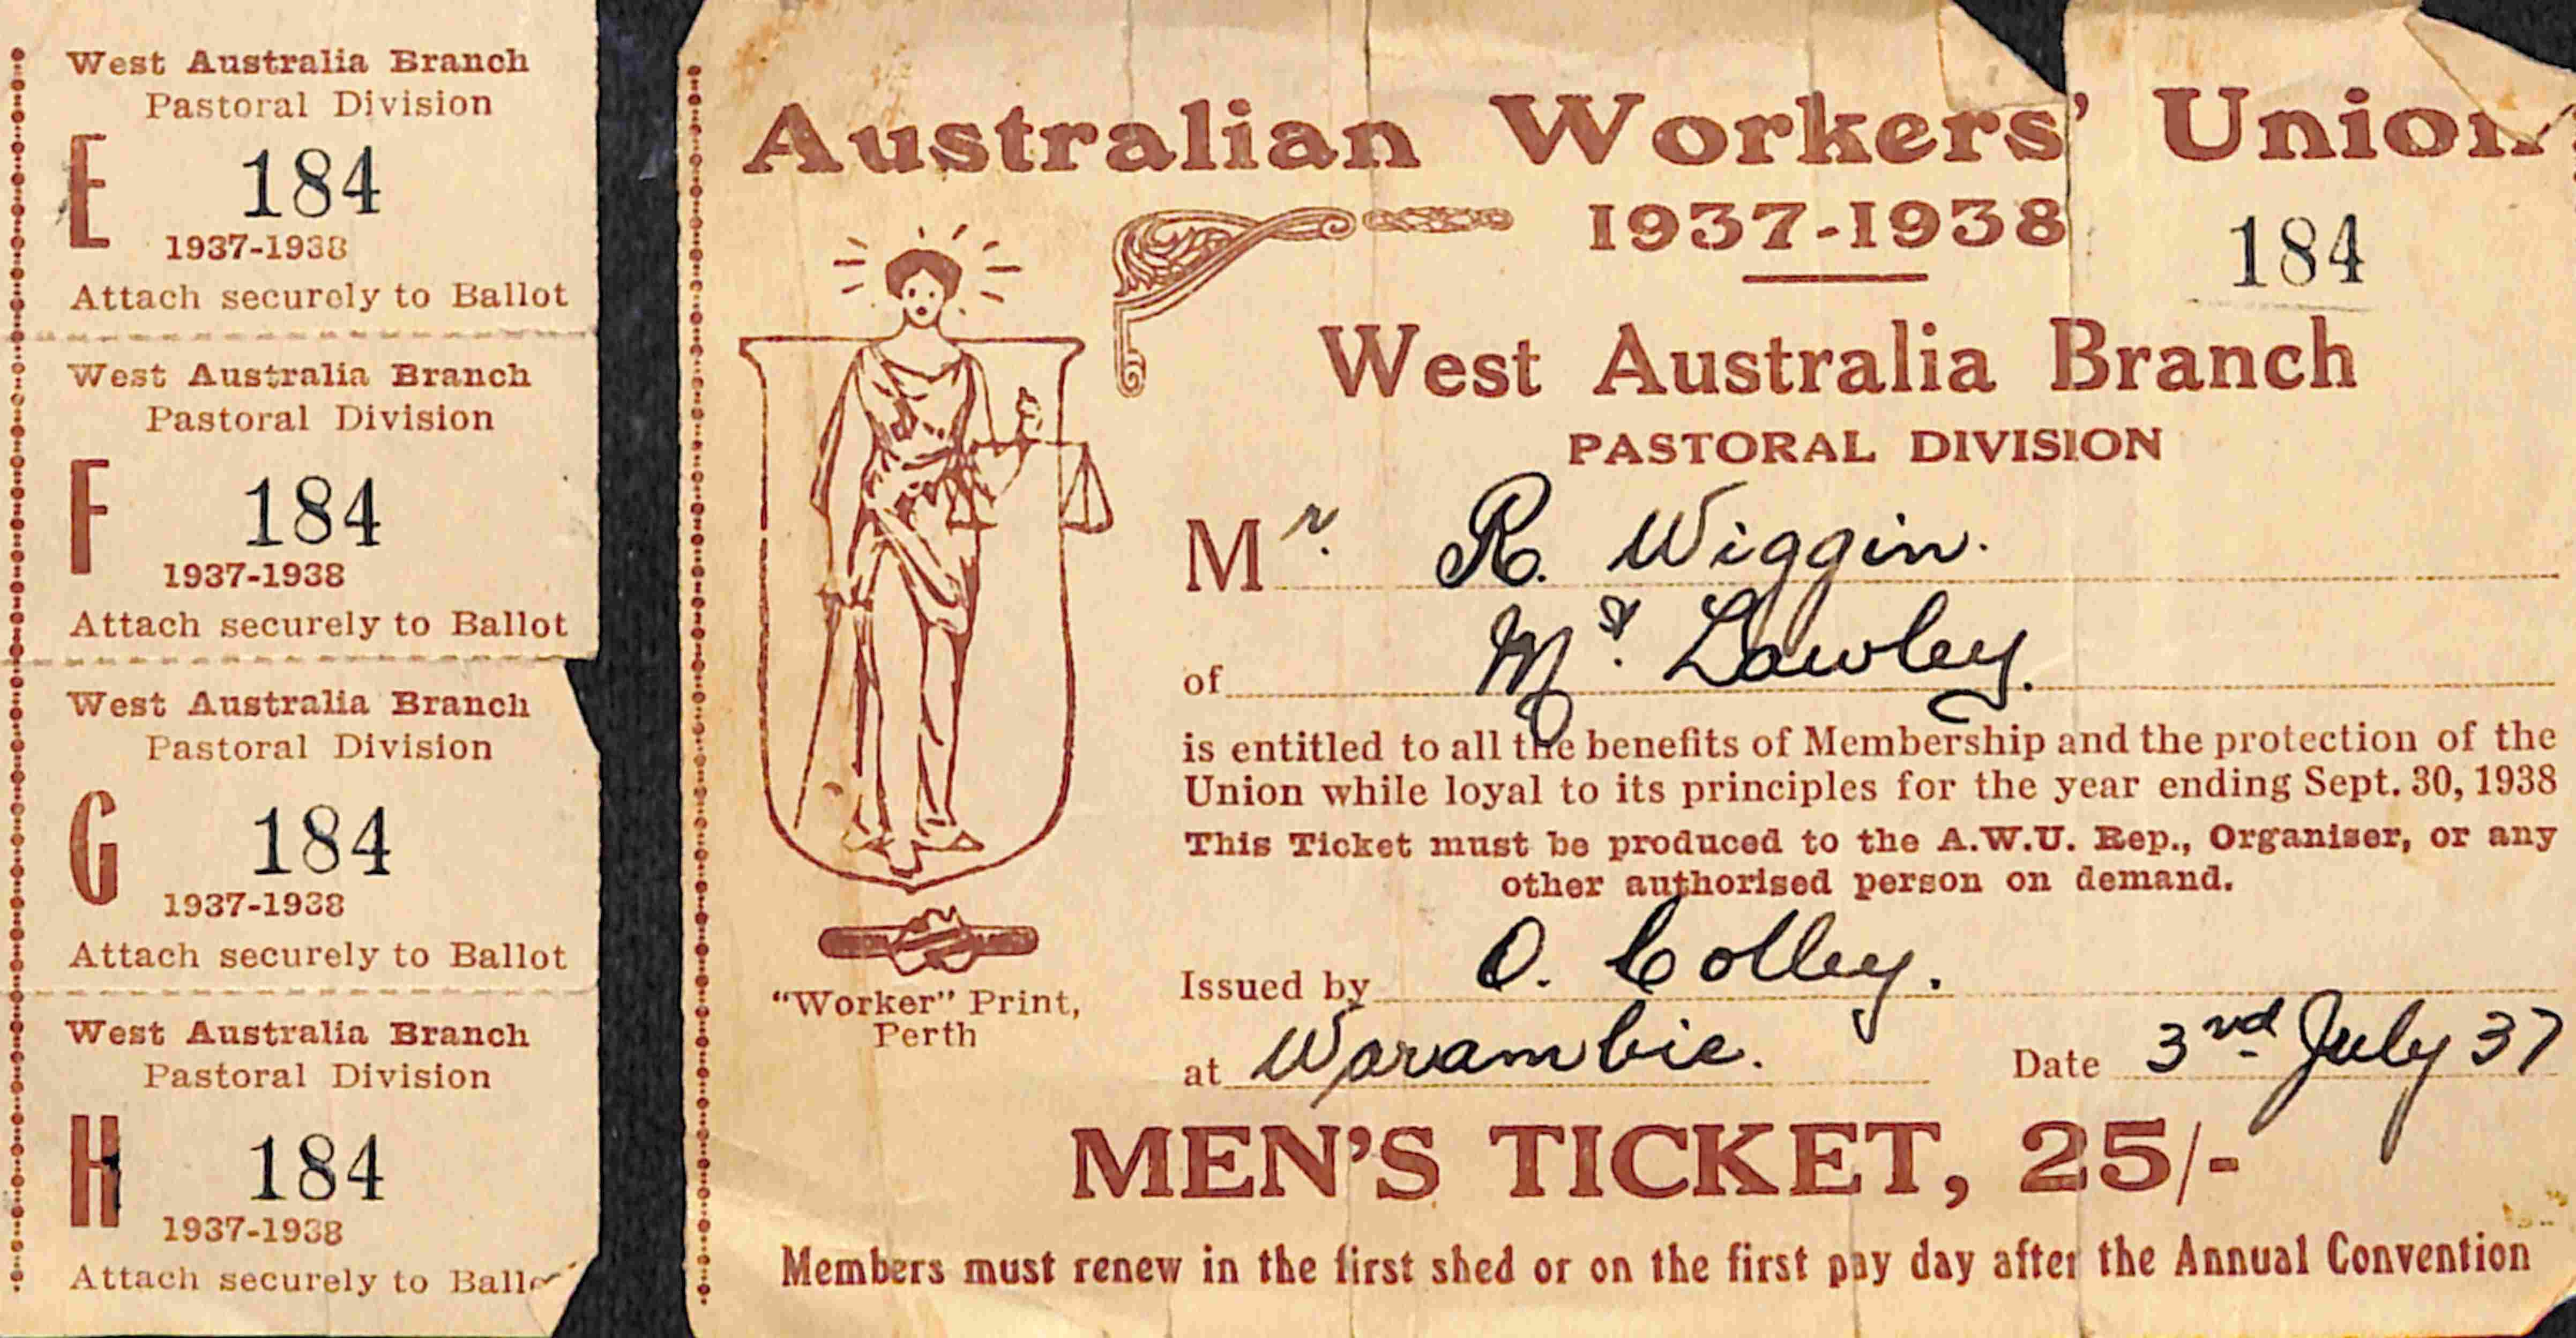 West Australia Branch
Pastoral Division
E 184
1937-1938
Attach securely to Ballot
West Australia Branch
Pastoral Division
F 184
1937-1938
Attach securely to Ballot
West Australia Branch
Pastoral Division
G 184
1937-1938
Attach securely to Ballot
West Australia Branch
Pastoral Division
H 184
1937-1938
Attach securely to Ballo
Australian Workers' Union
1937-1938
184
West Australia Branch
PASTORAL DIVISION
Mr. R. Wiggin.
of Mt. Lawley.
is entitled to all the benefits of Membership and the protection of the
Union while loyal to its principles for the year ending Sept. 30, 1938
This Ticket must be produced to the A.W.U. Rep., Organiser, or any
other authorised person on demand.
Issued by O. Colley.
at Warambie. Date 3rd July 37
"Worker" Print,
Perth
MEN'S TICKET, 25/-
Members must renew in the first shed or on the first pay day after the Annual Convention